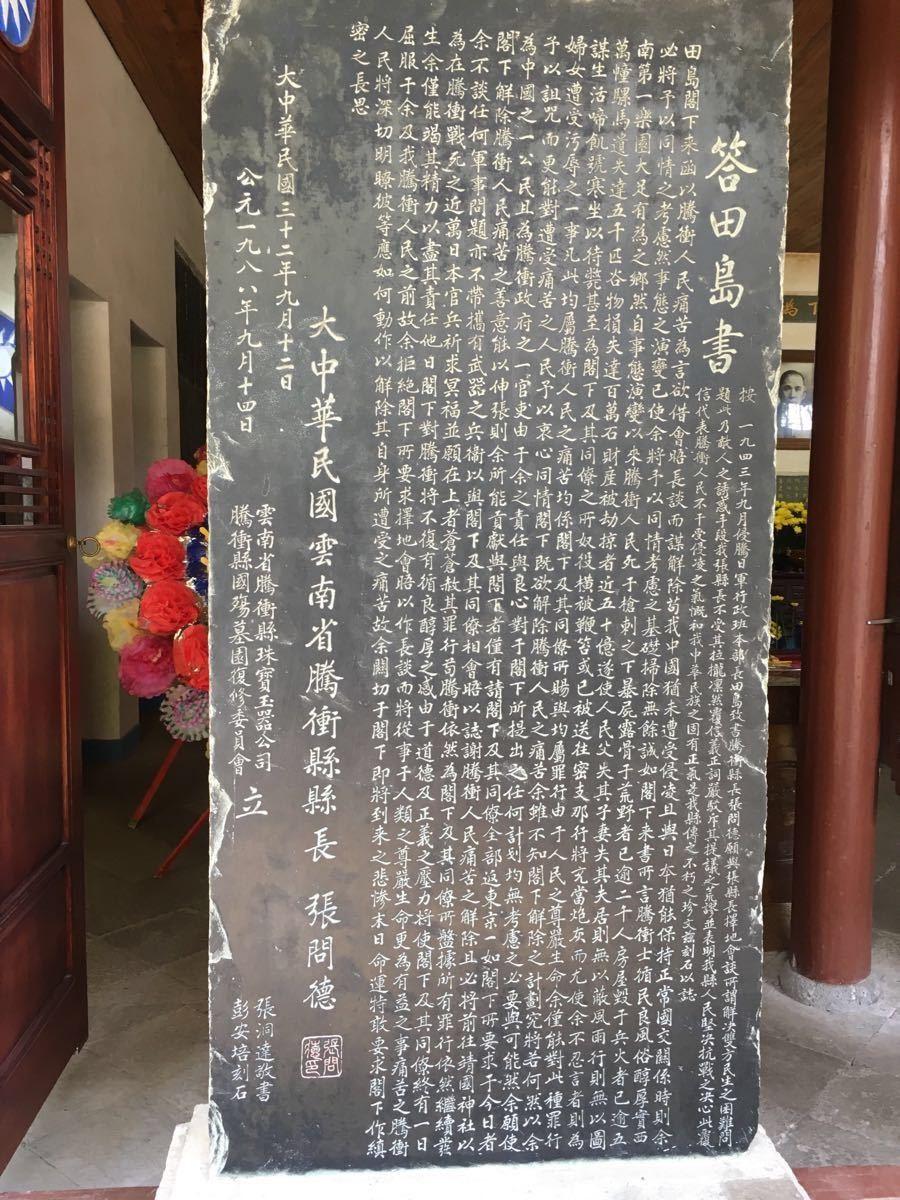 答田島書
按 一九四三年九月侵騰日軍行政班本部長田島致書騰衝縣長張問德願與張縣長擇地會談所謂解決雙方民生之困難問
題此乃敵人之誘惑手段我張縣長不受其拉攏凛然覆信義正詞嚴駁斥其提議之荒謬並表明我縣人民堅決抗戰之決心此覆
信代表騰衝人民不干受侵凌之氣慨和我中華民族之固有正氣是我縣傳之不朽之珍文兹刻石以誌
田島閣下来函以騰衝人民痛苦為言欲借會晤長談而謀解除苟我中國猶未遭受侵凌且與日本猶能保持正常國交關係時則余
必將予以同情之考慮然事態之演變已使余將予以同情考慮之基礎掃除無餘誠如閣下来書所言騰衝士循民良風俗醇厚實西
南第一樂園大足有為之鄉然自事態演變以來騰衝人民死于槍刺之下暴屍露骨于荒野者已逾二千人房屋毀于兵火者已逾五
萬幢騾馬遺失達五千匹谷物損失達百萬石財産被劫掠者近五十億遂使人民父失其子妻失其夫居則無以蔽風雨行則無以圖
謀生活啼飢號寒坐以待斃甚至為閣下及其同僚之所奴役橫被鞭笞或已被送往密支那行將充當炮灰而尤使余不忍言者則為
婦女遭受污辱之一事凡此均屬騰衝人民之痛苦均係閣下及其同僚所賜與均屬罪行由于人民之尊嚴生命余僅能對此種罪行
予以詛咒而更能對遭受痛苦之人民予以衷心同情閣下既欲解除騰衝人民之痛苦余雖不知閣下解除之計劃究將若何然以余
為中國之一公民且為騰衝政府之一官吏由于余之責任與良心對于閣下所提出之任何計划均無考慮之必要與可能然余願使
閣下解除騰衝人民痛苦之善意能以伸張則余所能貢獻與閣下者僅有請閣下及其同僚全部返東京一如閣下所要求于今日者
余不談任何軍事問題亦不帶攜有武器之兵衛以與閣下及其同僚相會晤以誌謝騰衝人民痛苦之解除且必將前往靖國神社以
為在騰衝戰死之近萬日本官兵祈求冥福並願在上者蒼蒼赦其罪行苟騰衝依然為閣下及其同僚所盤據所有罪行依然繼續發
生余僅能竭其精力以盡其責任他日閣下對騰衝將不復有循良醇厚之感由于道德及正義之壓力將使閣下及其同僚終有一日
屈服于余及我騰衝人民之前故余拒絕閣下所要求擇地會晤以作長談而將從事于人類之尊嚴生命更為有益之事痛苦之騰衝
人民將深切明瞭彼等應如何動作以解除其自身所遭受之痛苦故余關切于閣下即將到来之悲慘末日命運特敢要求閣下作縝
密之長思
大中華民國雲南省騰衝縣縣長 張問德
張問德印
大中華民國三十二年九月十二日
公元一九八八年九月十四日
雲南省騰衝縣珠寶玉器公司
騰衝縣國殤墓園復修委員會 立
張洞達敬書
彭安培刻石